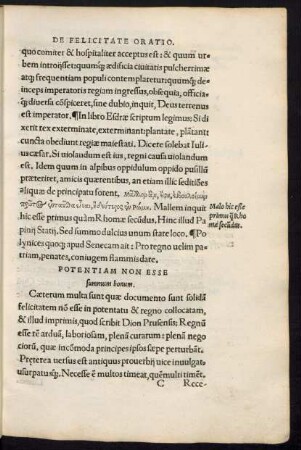 DE FELICITATE ORATIO.
quo comiter & hospitaliter acceptus est: & quum ur-
bem introiisset: quumq; ædificia ciuitatis pulcherrimæ
atq; frequentiam populi contemplaretur: quumq; de-
inceps imperatoris regiam ingressus, obsequia, offici-
aq; diuersa cōspiceret, sine dubio, inquit, Deus terrenus
est imperator. ¶In libro Esdræ scriptum legimus: Si di-
xerit rex exterminate, exterminant: plantate, plātant:
cuncta obediunt regiæ maiestati. Dicere solebat Iuli-
us cæsar. Si uiolandum est ius, regni causa uiolandum
est. Idem quum in alpibus oppidulum oppido pusillū
præteriret, amicis quærentibus, an etiam illic seditiōes
essent aliquæ de principatu
Mallem inquit
hic esse primus quàm Rhomæ secūdus. Hinc illud Pa
pinij Statij. Sed summo dulcius unum stare loco. ¶Po
lynices quoq; apud Senecam ait: Pro regno uelim pa-
triam, penates, coniugem flammis dare.
Malo hic esse
primus q̃ Rho
mæ secūdus.
POTENTIAM NON ESSE
summum bonum.
Cæterum multa sunt quæ documento sunt solidā
felicitatem nō esse in potentatu & regno collocatam,
& illud imprimis, quod scribit Dion Prusensis: Regnū
esse rē arduā, laboriosam, plenā curarum: plenā nego
ciorū, quæ incōmoda principes ipsos sæpe perturbāt.
Præterea uersus est antiquus prouerbij uice inuulgat-
us Necesse ē multos timeat, quem multi timēt.
C Rece-